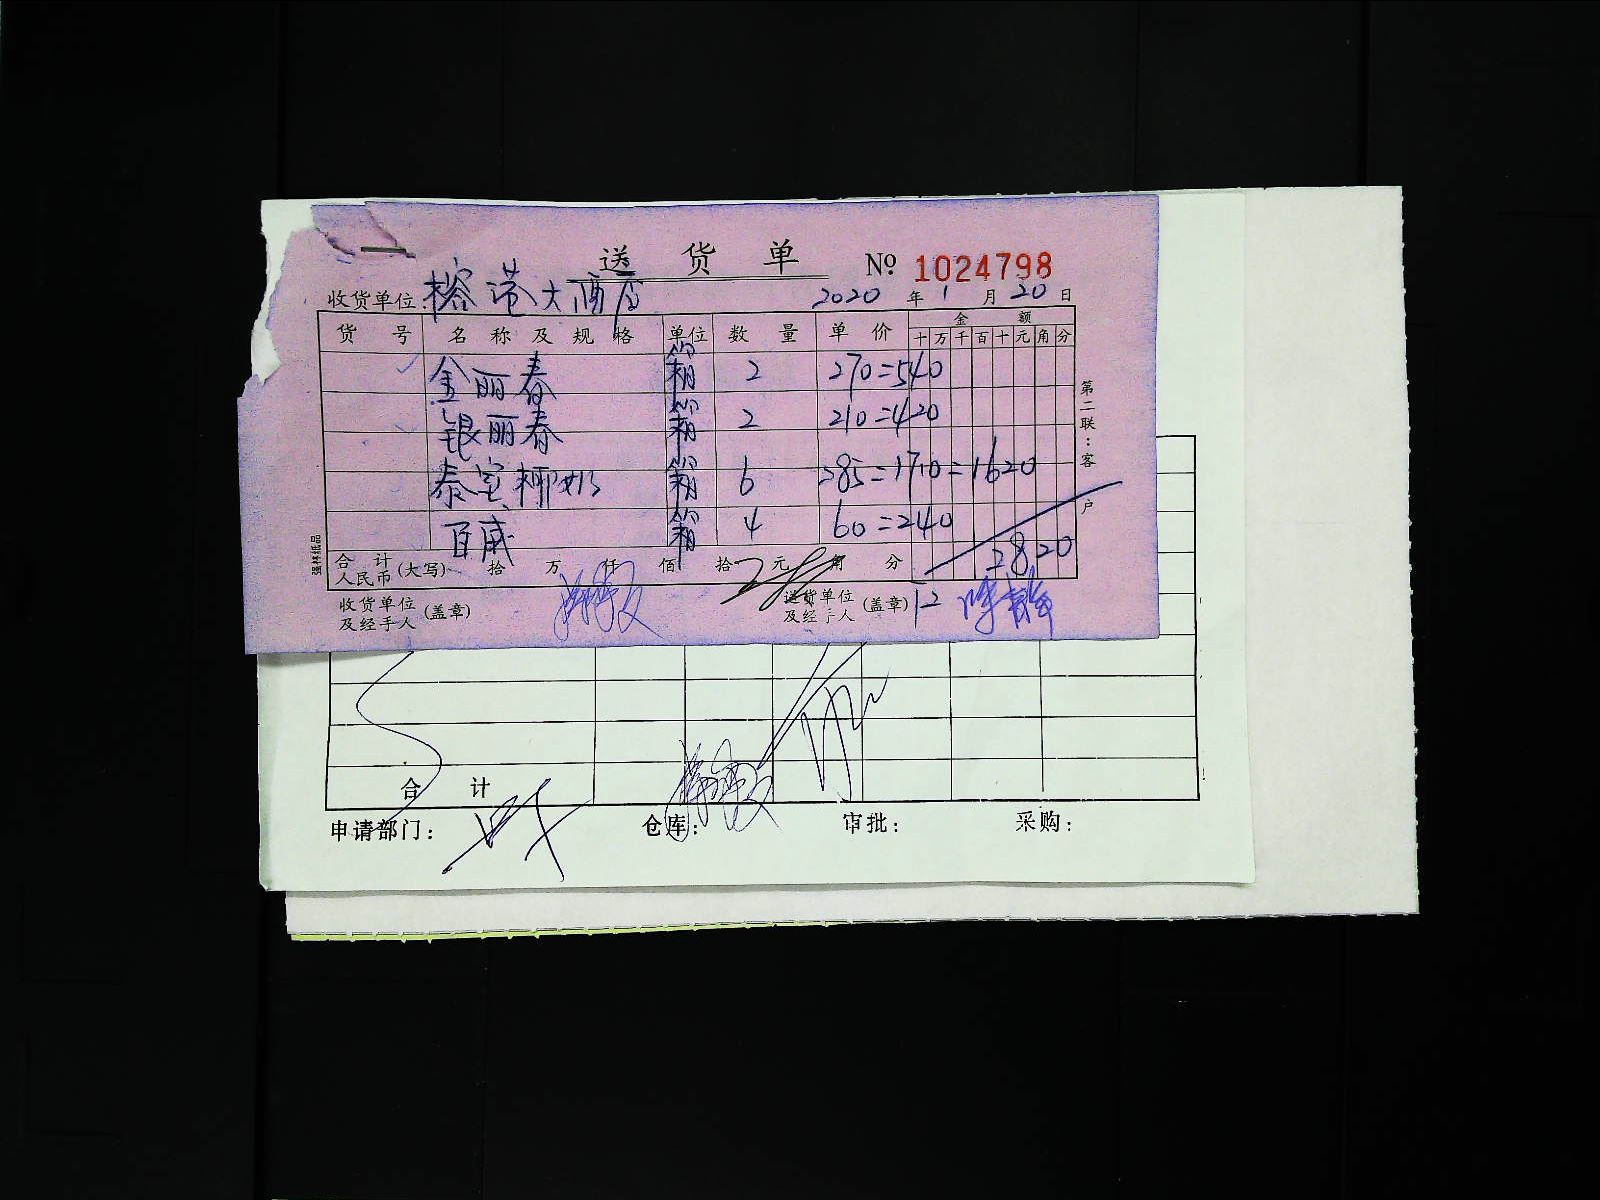 送货单 № 1024798
收货单位:榕港大酒店 2020年1月20日
货号 名称及规格 单位 数量 单价 金额
十万千百十元角分
金丽春 箱 2 270=540
银丽春 箱 2 210=420
泰室椰奶 箱 6 285=1710=1620
百威 箱 4 60=240
合计 人民币(大写) 拾 万 仟 佰 拾 元 角 分 2820
收货单位及经手人(盖章) 送货单位及经手人(盖章)
第二联:客户
合计
申请部门: 仓库: 审批: 采购: